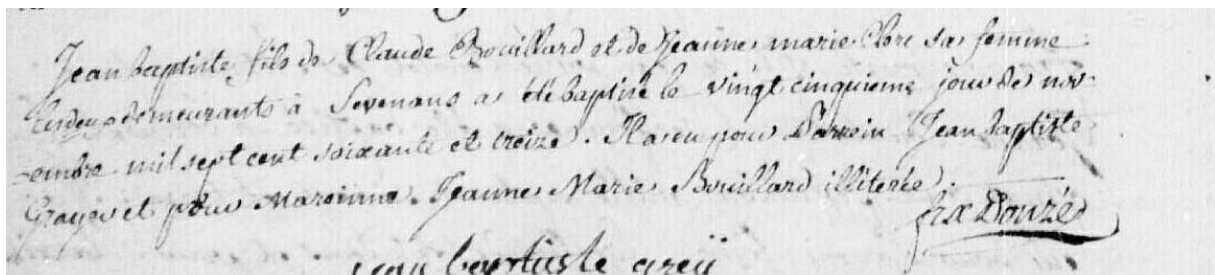 Jean baptiste fils de Claude Bouillard et de Jeanne marie Clerc sa femme
les deux demeurants à Sevenans a été baptisé le vingt cinquieme jour de nov-
-embre mil sept cent soixante et treize. Il a eu pour Parrein Jean baptiste
et pour Mareinne Jeanne Marie Bouillard illiterée.
jean baptiste